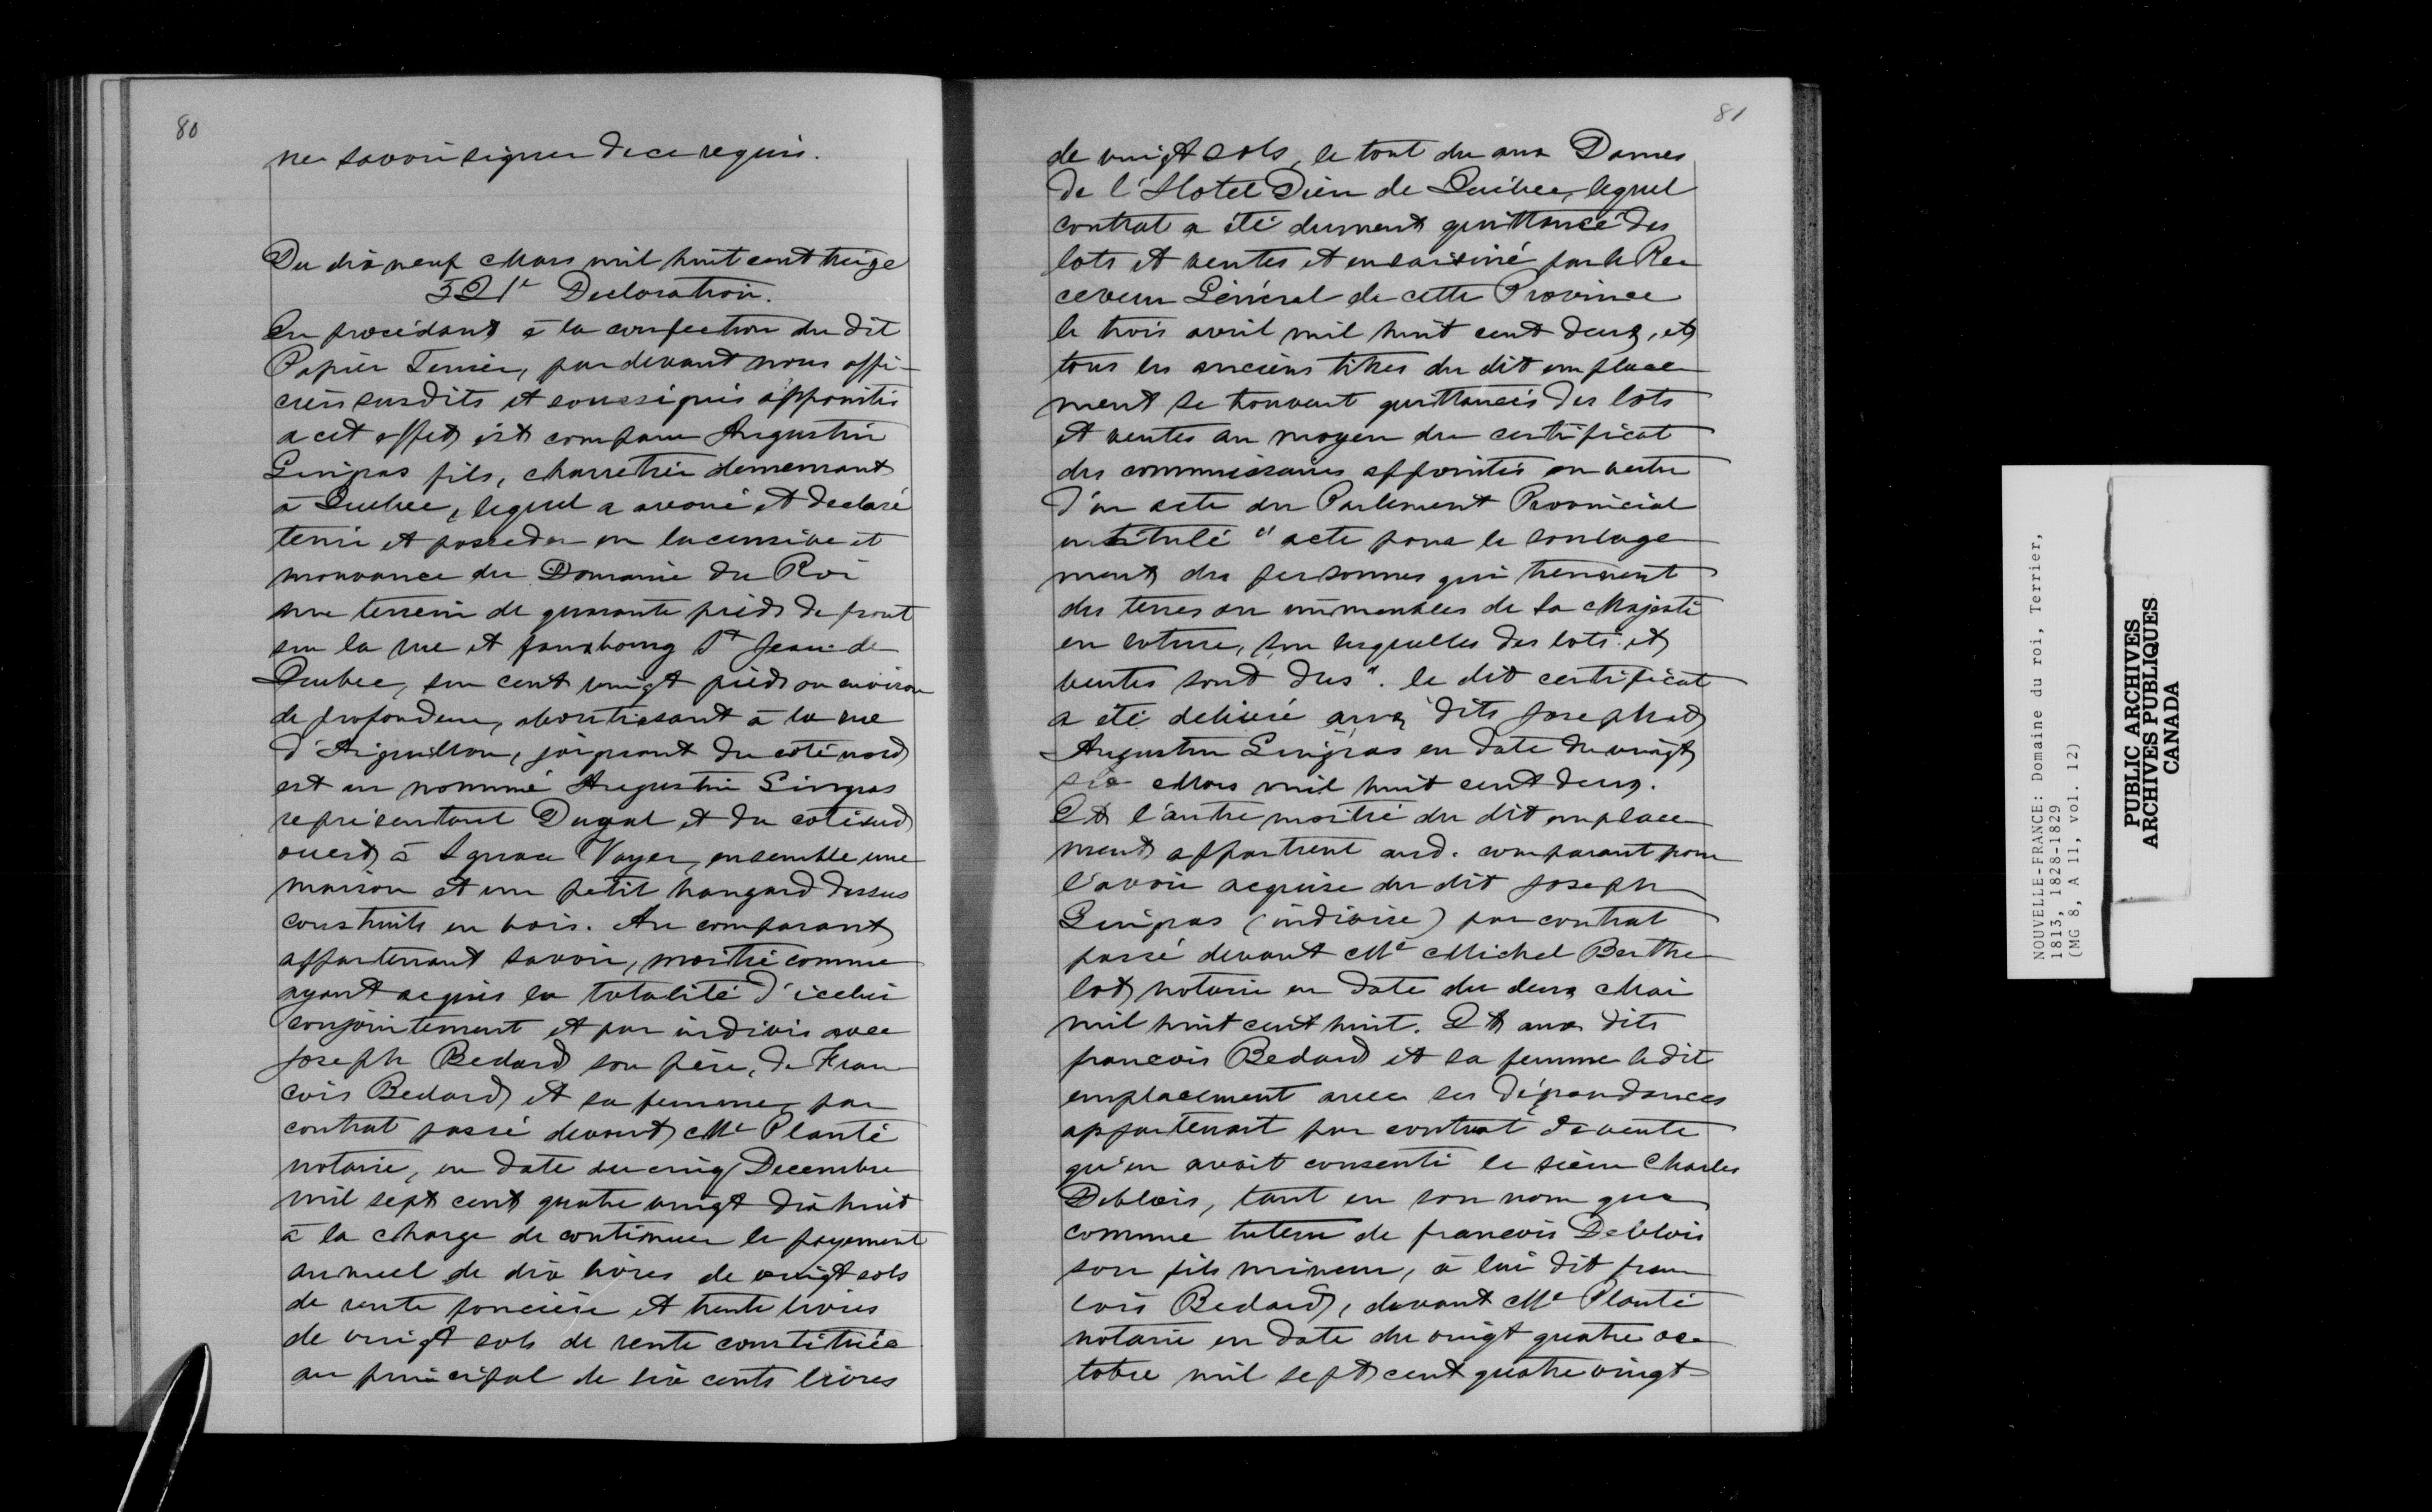 80
ne savoir signer de ce requis.
Du dix neuf Mars mil huit cent treize
321e Declaration.
En procédant à la confection du dit
Papier Terrier, par devant nous offi-
ciers susdits et soussignés appointés
a cet effet, est comparu Augustin
Gingras fils, charretier demeurant
à Quebec, lequel a avoué et declaré
tenir et posseder en la censive et
mouvance du Domaine du Roi
un terrein de quarante pieds de front
sur la rue et fauxbourg St Jean de
Quebec, sur cent vingt pieds ou environ
de profondeur, aboutissant à la rue
d'Aiguillon, joignant du coté nord
est un nommé Augustin Gingras
représentant Dugal et du coté sud
ouest à Ignace Voyer, ensemble une
maison et un petit hangard dessus
construits en bois. Au comparant
appartenant savoir, moitié comme
ayant acquis la totalité d'icelui
conjointement et par indivis avec
Joseph Bedard son père, de Fran
cois Bedard et sa femme par
contrat passé devant Me Planté
notaire, en date du cinq Decembre
mil sept cent quatre vingt dix huit
à la charge de continuer le payement
annuel de dix livres de vingt sols
de rente foncière et trente livres
de vingt sols de rente constituée
au principal de six cents livres
81
de vingt sols, le tout du aux Dames
de l'Hotel Dieu de Québec, lequel
contrat a été dument quittancé des
lots et ventes et ensaisiné par le Re
ceveur Général de cette Province
le trois avril mil huit cent deux, et
tous les anciens titres du dit emplace
ment se trouvent quittancés des lots
et ventes au moyen du certificat
des commissaires appointés en vertu
d'un acte du Parlement Provincial
intitulé "acte pour le soulage
ment des personnes qui tiennent
des terres ou immeubles de Sa Majesté
en roture, sur lesquelles des lots et
ventes sont dus". le dit certificat
a été delivré aux dits Joseph et
Augustin Gingras en date du vingt
six Mars mil huit cent deux.
Et l'autre moitié du dit emplace
ment appartient aud. comparant pour
l'avoir acquise du dit Joseph
Gingras (indivise) par contrat
passé devant Me Michel Berthe
lot notaire en date du deux Mai
mil huit cent huit. Et aux dits
francois Bedard et sa femme le dit
emplacement avec ses dépandances
appartenoit par contrat de vente
qu'en avoit consenti le sieur Charles
Deblois, tant en son nom que
comme tuteur de francois Deblois
son fils mineur, à lui dit fran
cois Bedard, devant Me Planté
notaire en date du vingt quatre oc
tobre mil sept cent quatre vingt
NOUVELLE-FRANCE: Domaine du roi, Terrier,
1813, 1828-1829
(MG 8, A 11, vol. 12)
PUBLIC ARCHIVES
ARCHIVES PUBLIQUES
CANADA